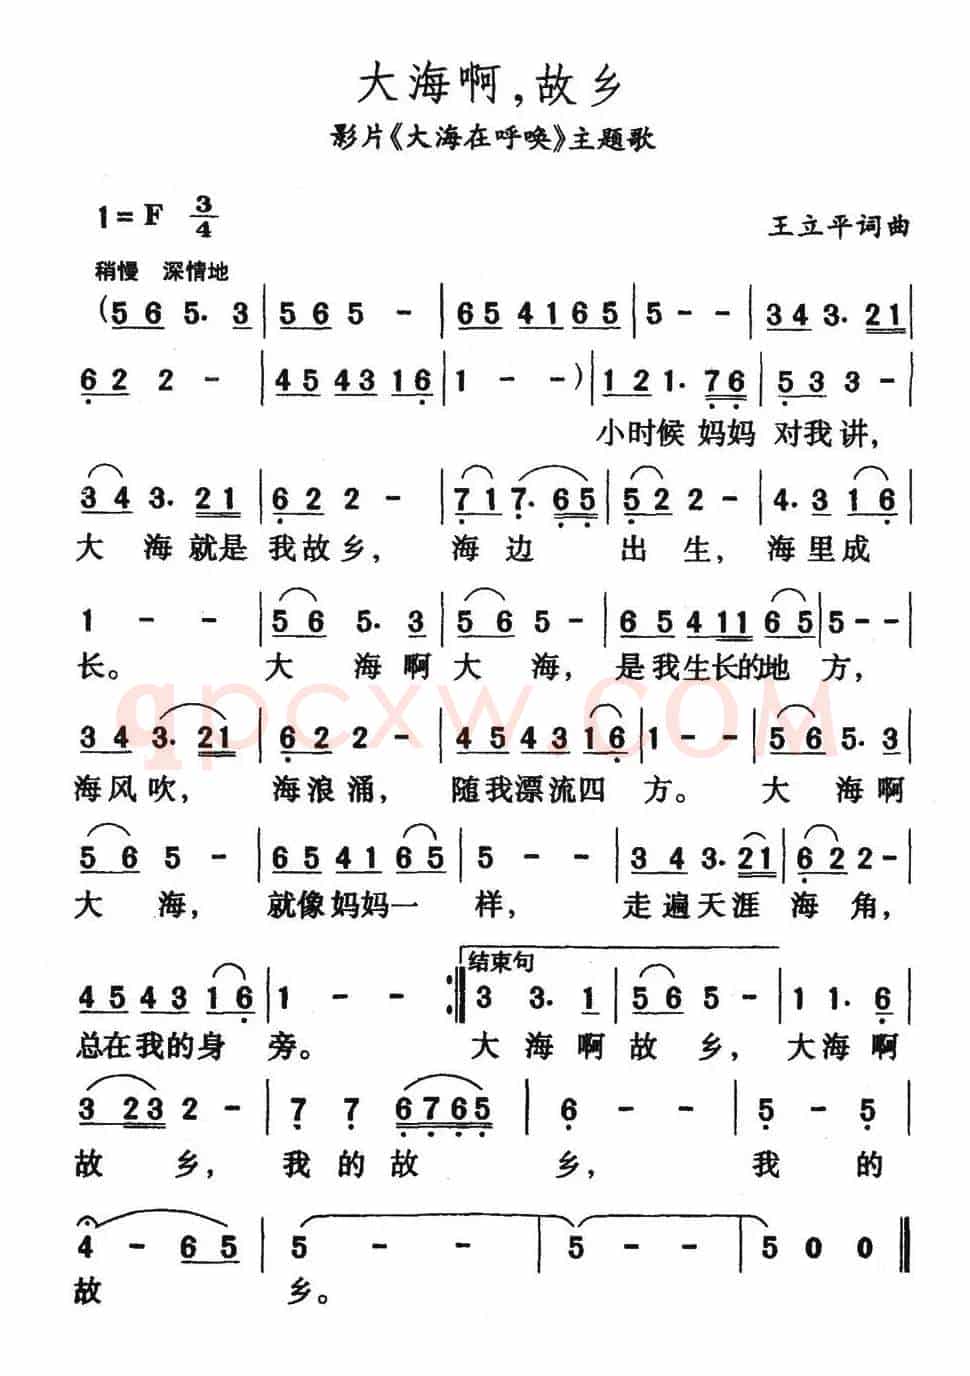 大海啊,故乡
影片《大海在呼唤》主题歌
1=F 3/4
王立平词曲
稍慢 深情地
(5 6 5. 3 | 5 6 5 - | 6 5 4 1 6 5 | 5 - - | 3 4 3. 2 1 |
6 2 2 - | 4 5 4 3 1 6 | 1 - - ) | 1 2 1. 7 6 | 5 3 3 - |
小时候 妈妈 对我讲,
3 4 3. 2 1 | 6 2 2 - | 7 1 7. 6 5 | 5 2 2 - | 4. 3 1 6 |
大 海 就是 我故乡, 海 边 出 生, 海里成
1 - - | 5 6 5. 3 | 5 6 5 - | 6 5 4 1 1 6 5 | 5 - - |
长。 大 海啊 大 海, 是我生长的地 方,
qpcxw.COM
3 4 3. 2 1 | 6 2 2 - | 4 5 4 3 1 6 | 1 - - | 5 6 5. 3 |
海风吹, 海浪涌, 随我漂流四 方。 大 海啊
5 6 5 - | 6 5 4 1 6 5 | 5 - - | 3 4 3. 2 1 | 6 2 2 - |
大 海, 就像妈妈一 样, 走遍天涯 海 角,
结束句
4 5 4 3 1 6 | 1 - - :| 3 3. 1 | 5 6 5 - | 1 1. 6 |
总在我的身 旁。 大 海 啊 故 乡, 大海啊
3 2 3 2 - | 7 7 6 7 6 5 | 6 - - | 5 - 5 |
故 乡, 我 的 故 乡, 我 的
4 - 6 5 | 5 - - | 5 - - | 5 0 0 ‖
故 乡。